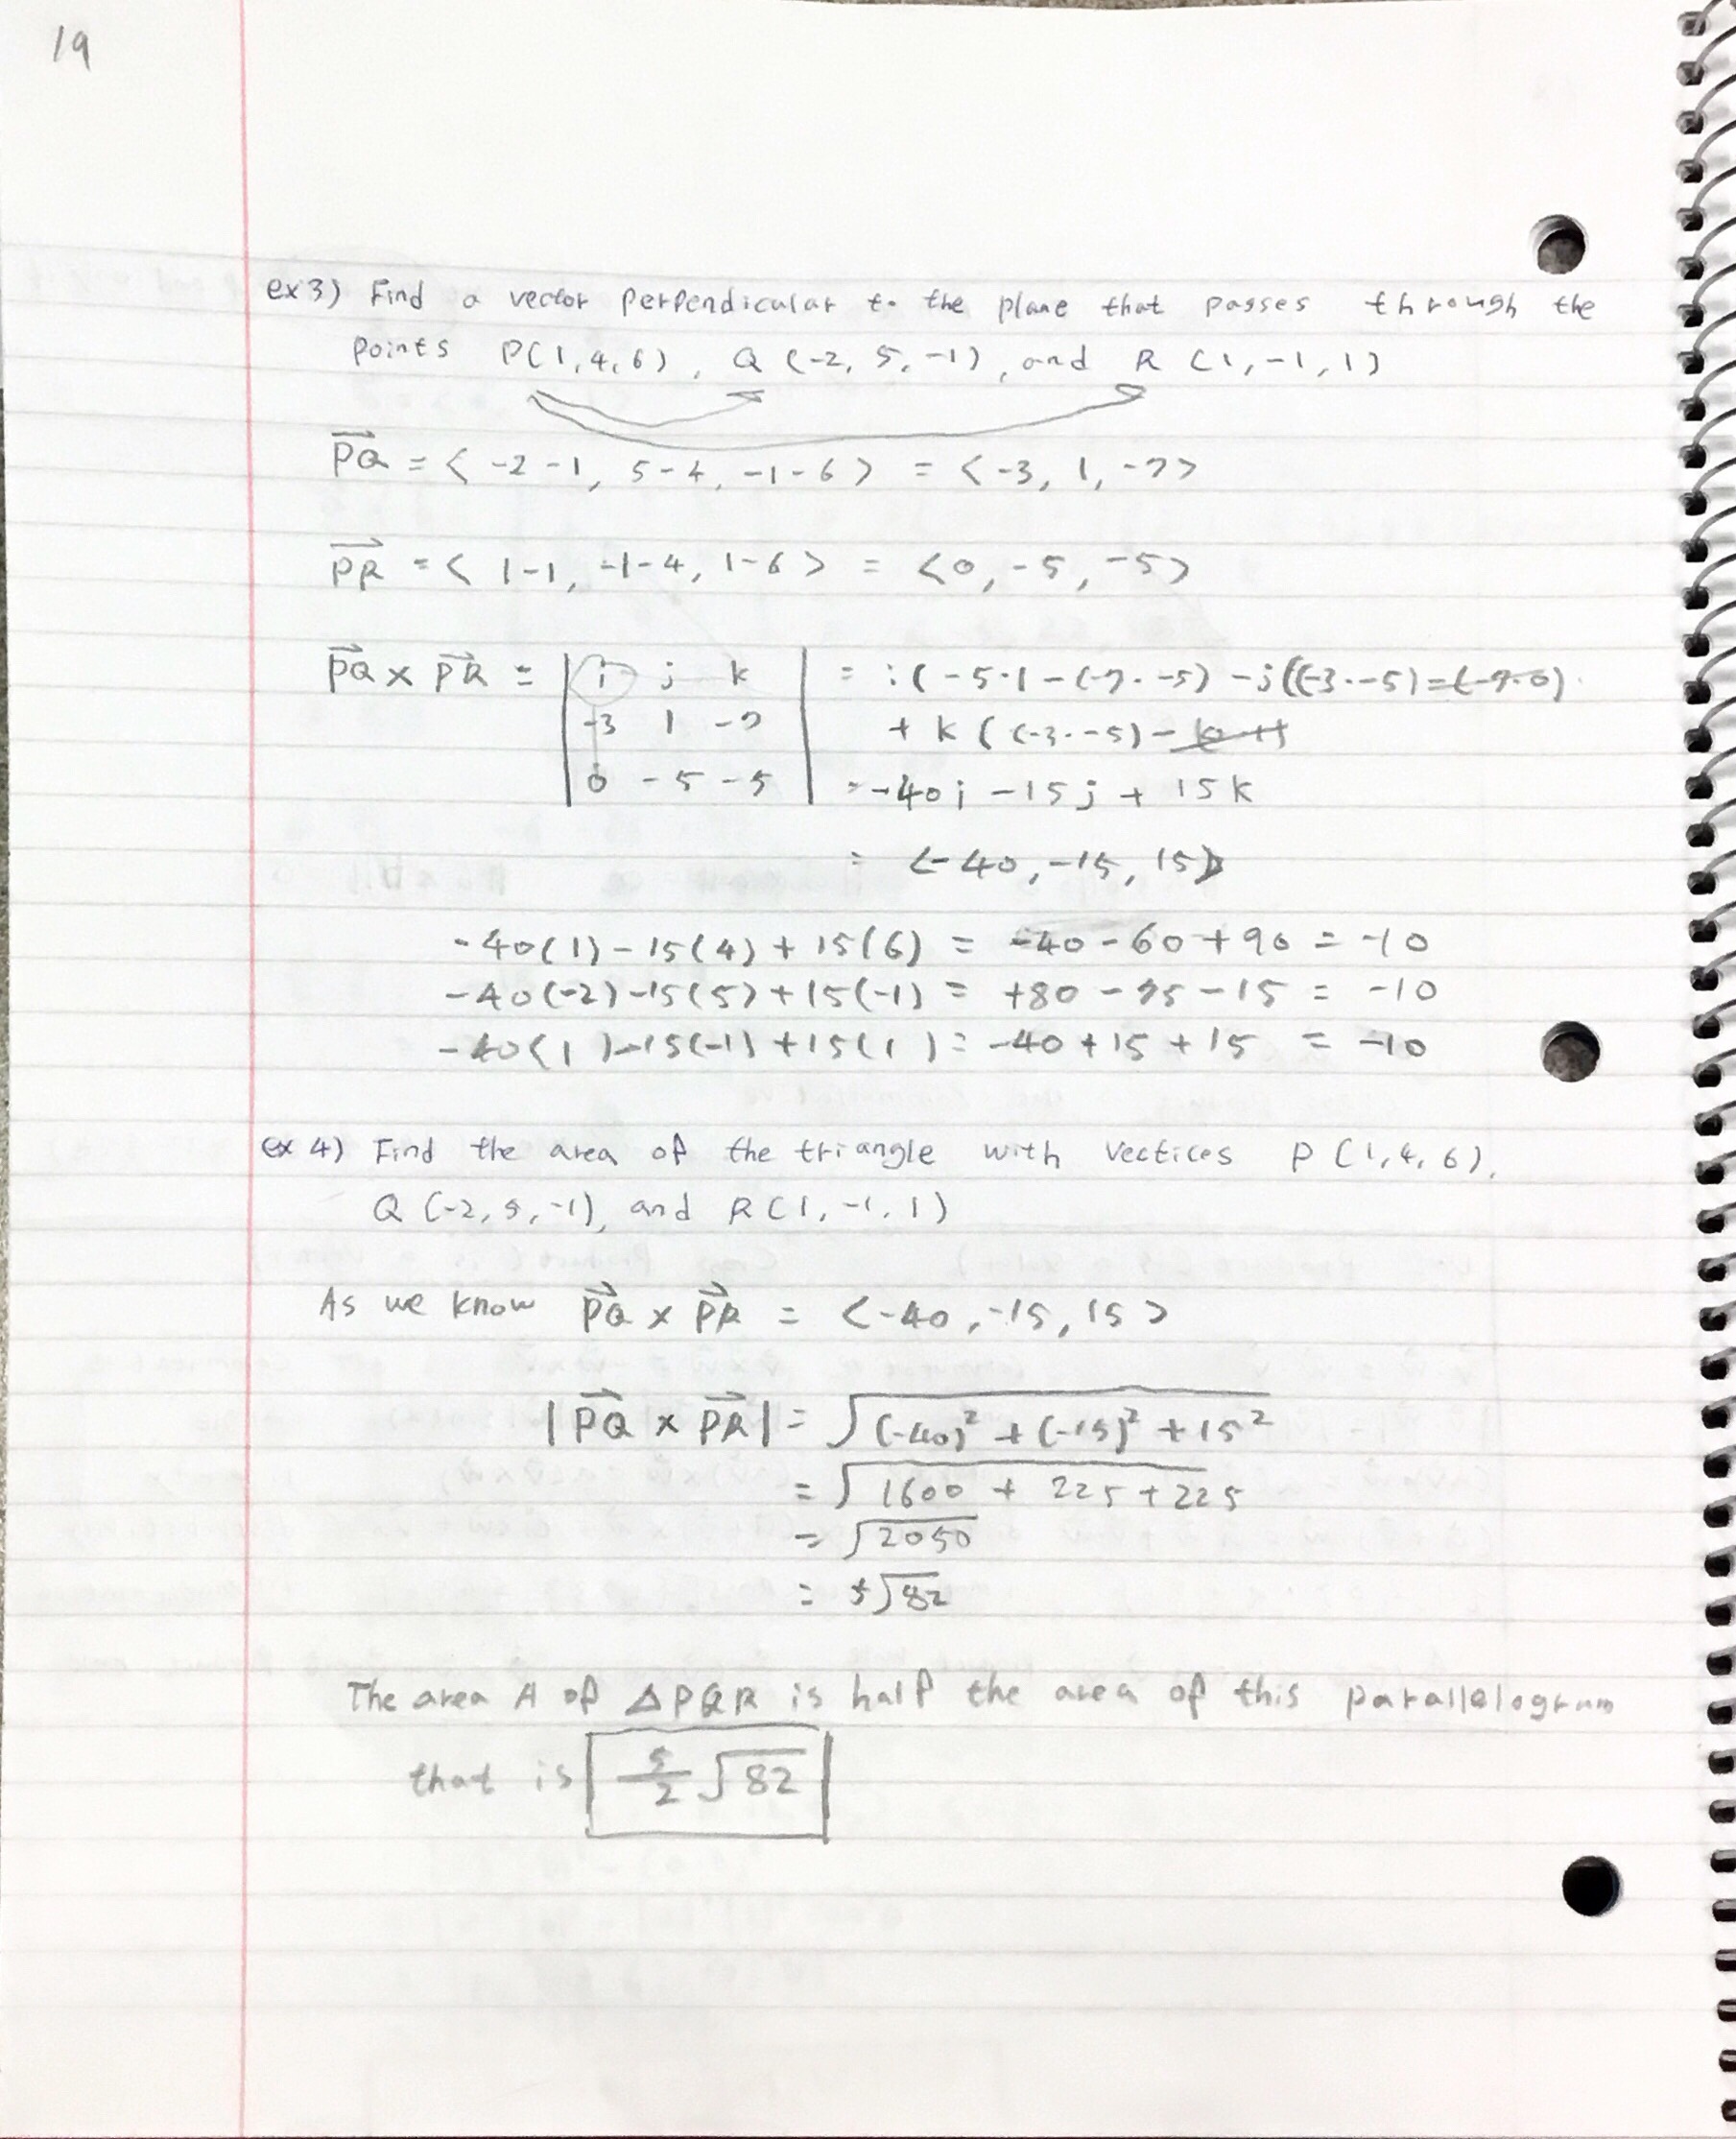 19
ex3) Find a vector perpendicular to the plane that passes through the
points P(1,4,6), Q(-2, 5, -1), and R(1,-1,1)
PQ = < -2-1, 5-4, -1-6 > = < -3, 1, -7>
PR = < 1-1, -1-4, 1-6 > = <0, -5, -5>
PQ × PR = | i j k | = i(-5·1 - (-7·-5) - j((-3·-5) = (-7·0)
-3 1 -7 + k((-3·-5) -
0 -5 -5 = -40i - 15j + 15k
= <-40, -15, 15>
-40(1) - 15(4) + 15(6) = -40 - 60 + 90 = -10
-40(-2) - 15(5) + 15(-1) = +80 - 75 - 15 = -10
-40(1) - 15(-1) + 15(1) = -40 + 15 + 15 = -10
ex 4) Find the area of the triangle with vectices P(1,4,6),
Q(-2, 5, -1), and R(1,-1,1)
As we know PQ × PR = <-40, -15, 15>
|PQ × PR| = √(-40)² + (-15)² + 15²
= √1600 + 225 + 225
= √2050
= 5√82
The area A of △PQR is half the area of this parallelogram
that is 5/2 √82